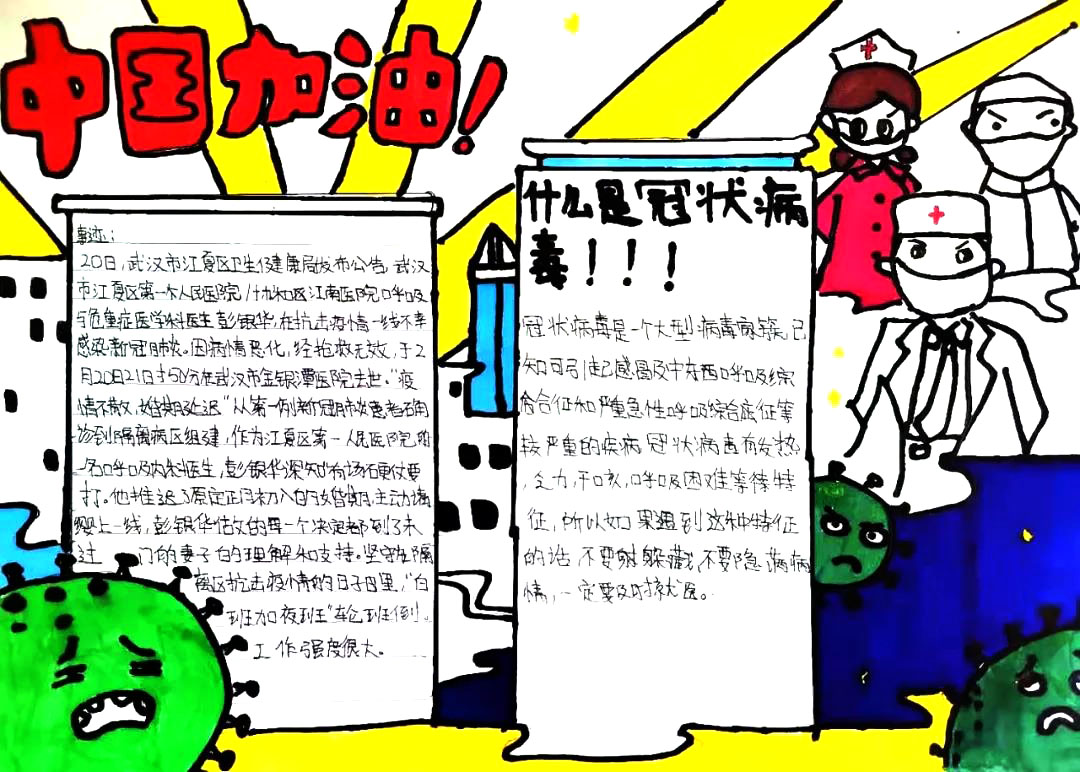 中国加油!
事迹:
20日,武汉市江夏区卫生健康局发布公告,武汉
市江夏区第一人民医院/协和江南医院呼吸
与危重症医学科医生彭银华,在抗击疫情一线不幸
感染新冠肺炎。因病情恶化,经抢救无效,于2
月20日21时50分在武汉市金银潭医院去世。“疫
情不散,婚期延迟”从第一例新冠肺炎患者确
诊到隔离病区组建,作为江夏区第一人民医院的
一名呼吸内科医生,彭银华深知有场硬仗要
打。他推迟了原定正月初八的婚期,主动请
缨上一线,彭银华做的每一个决定都到了未
过门的妻子的理解和支持。坚守在隔
离区抗击疫情的日子里,“白
班加夜班”轮班倒。
工作强度很大。
什么是冠状病
毒!!!
冠状病毒是一个大型病毒家族,已
知可引起感冒及中东呼吸综
合征和严重急性呼吸综合征等
较严重的疾病 冠状病毒有发热
,乏力,干咳,呼吸困难等特
征,所以如果遇到这种特征
的话,不要躲藏,不要隐瞒病
情,一定要及时就医。